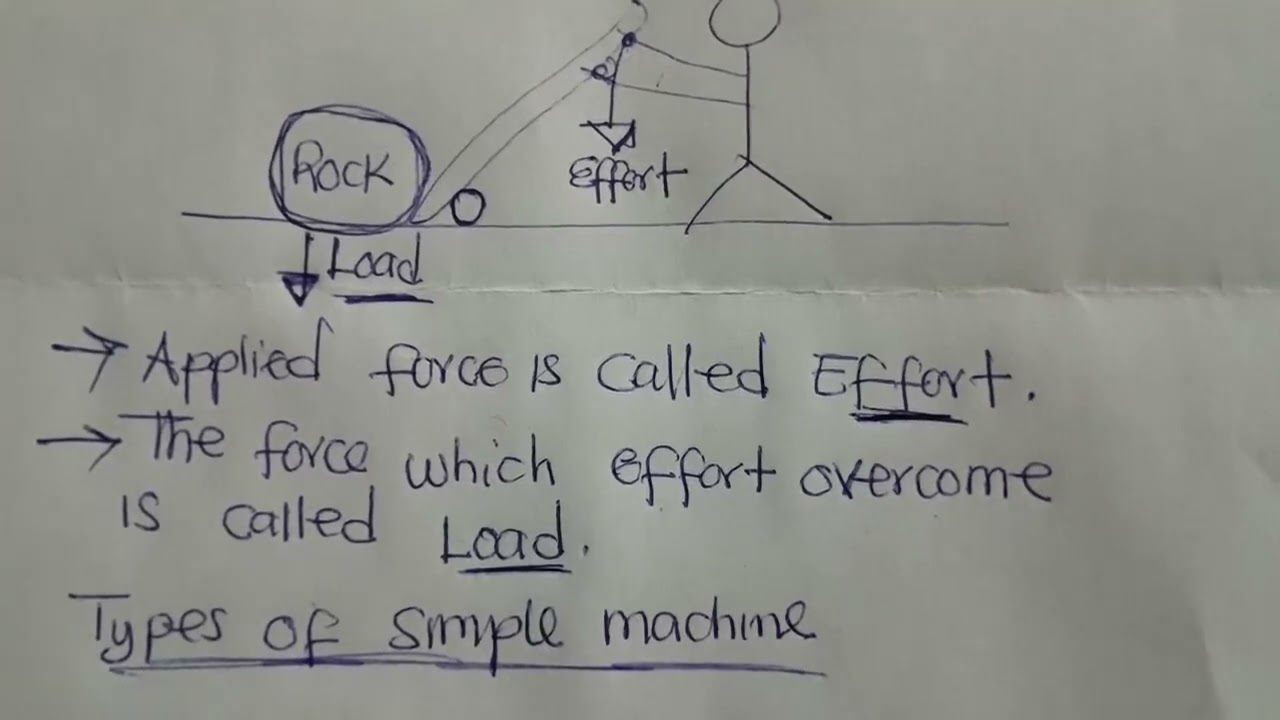 Rock
Effort
Load
→ Applied force is called Effort.
→ The force which effort overcome
is called Load.
Types of simple machine